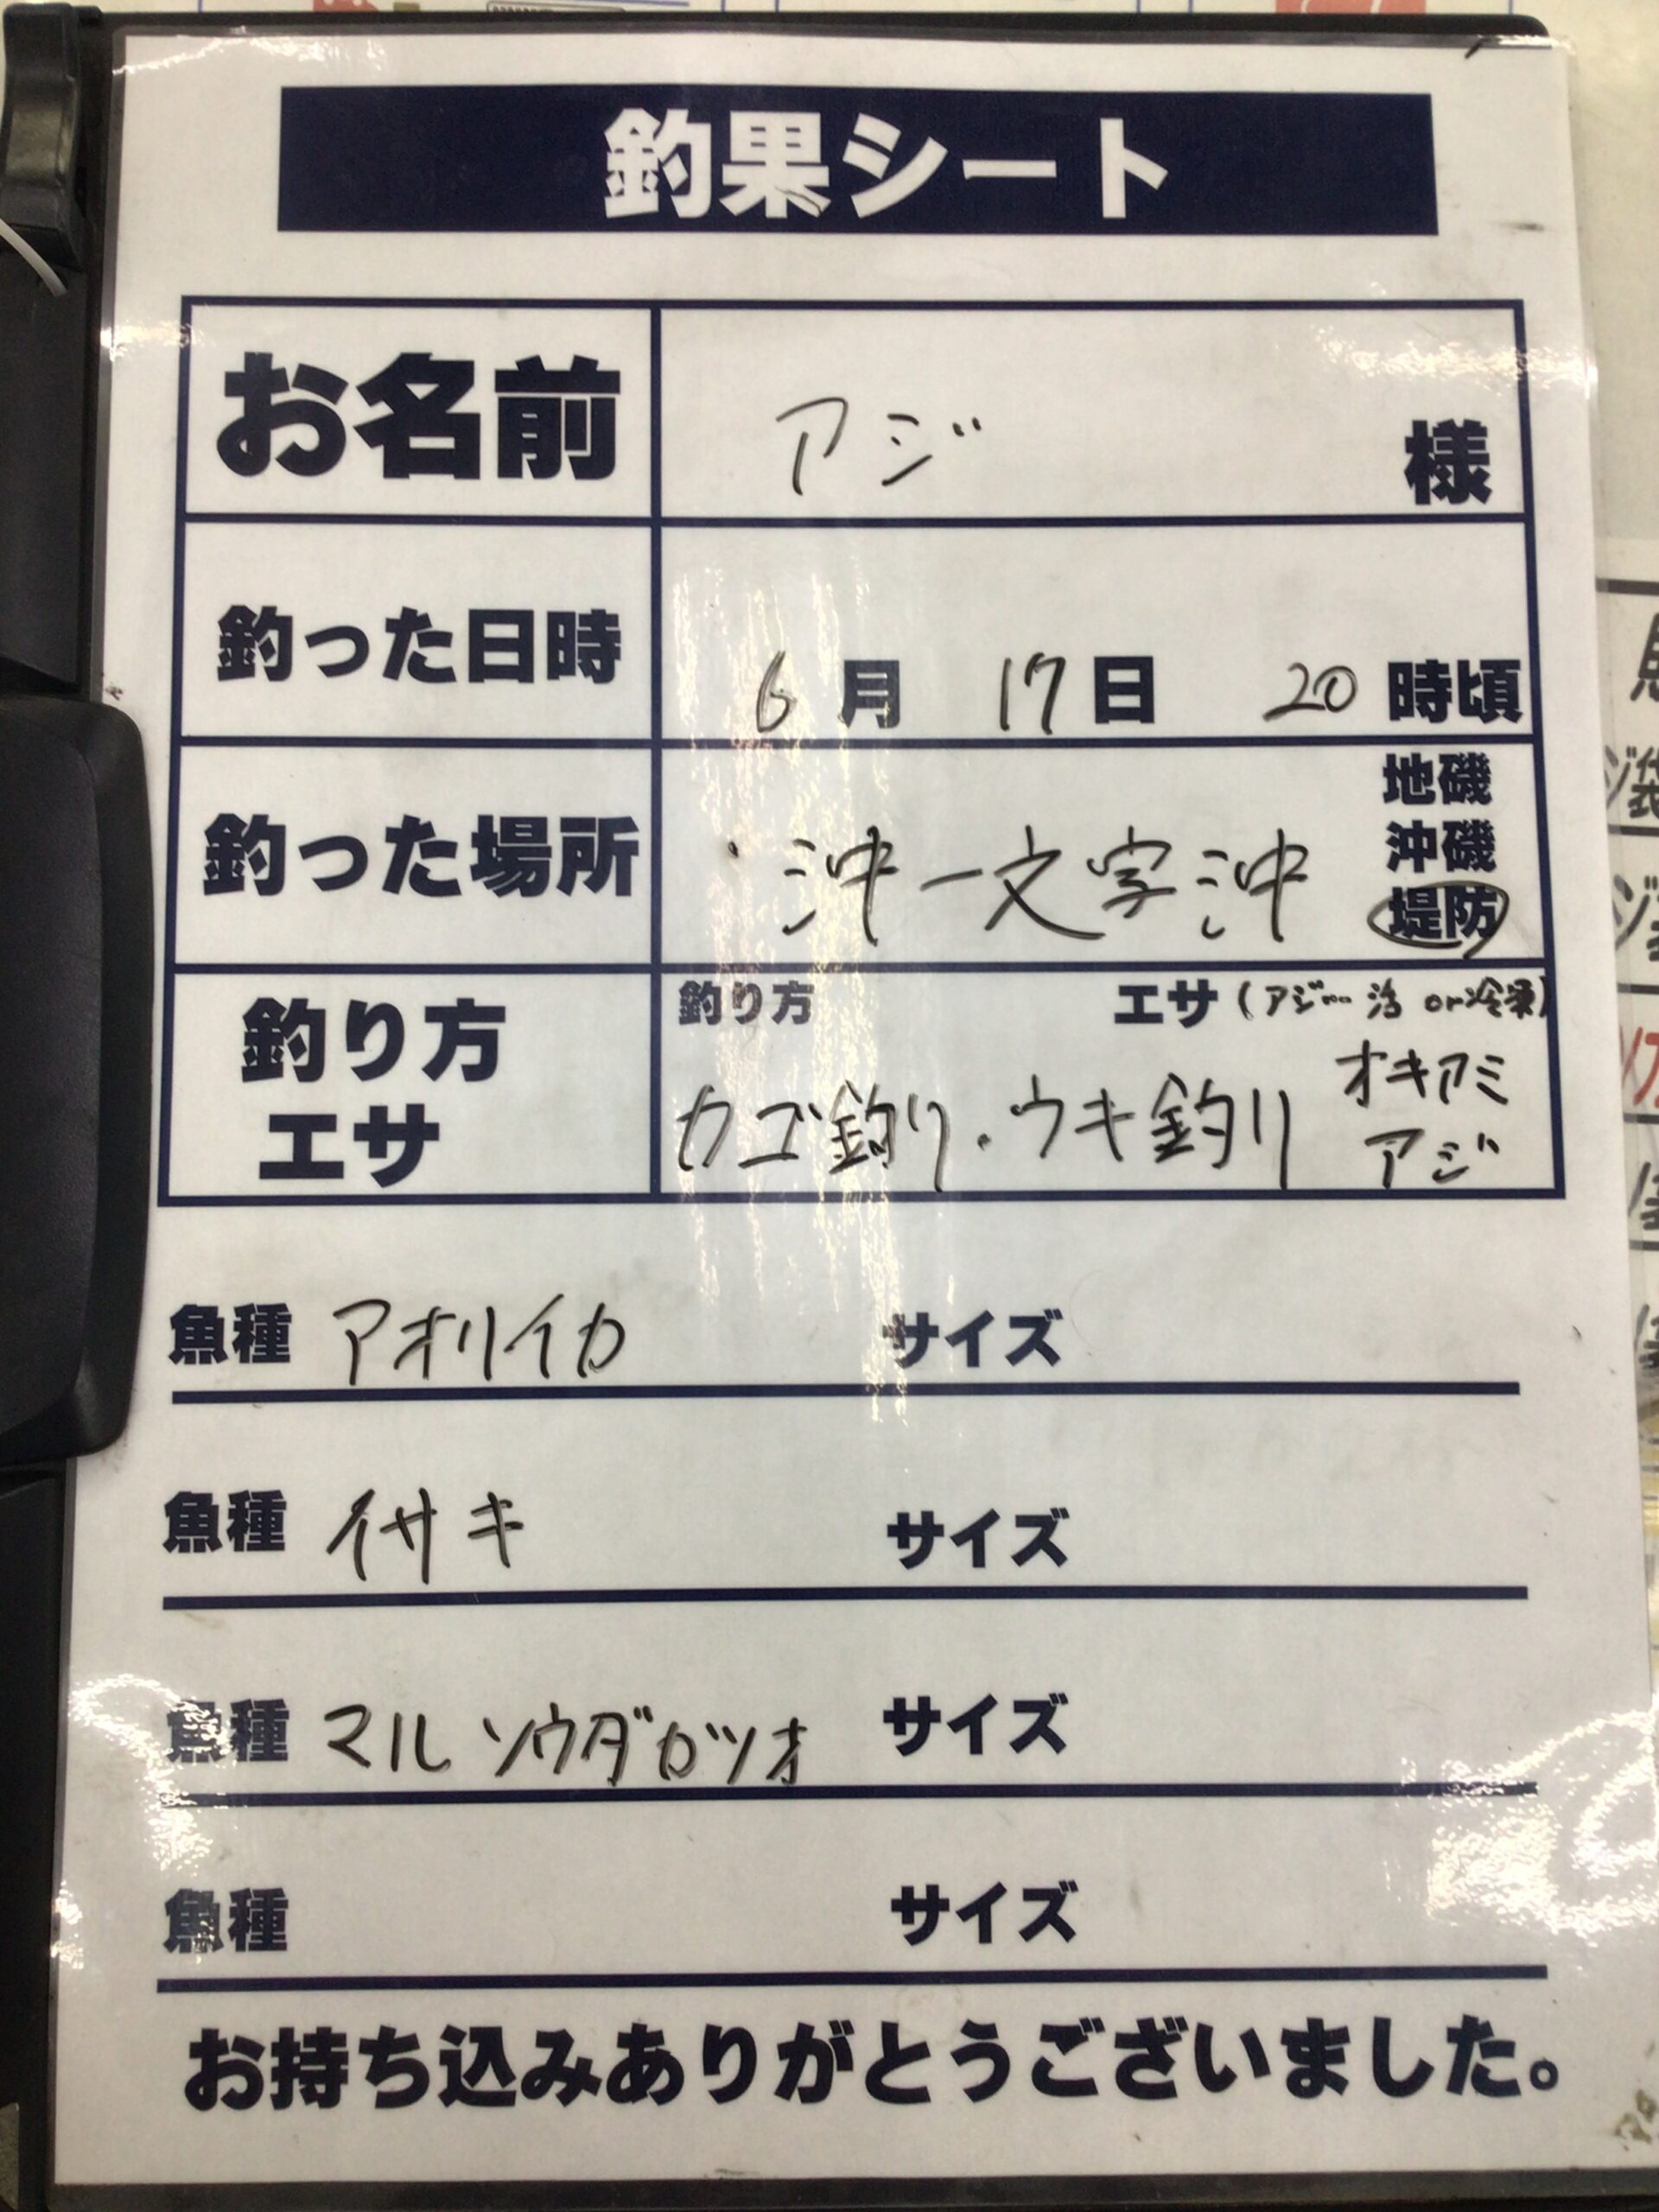 釣果シート
お名前 アジ 様
釣った日時 6月 17日 20時頃
釣った場所 沖一文字沖 地磯
沖磯
堤防
釣り方
エサ
釣り方 エサ(アジ…活 or冷凍)
カゴ釣り・ウキ釣り オキアミ
アジ
魚種 アオリイカ サイズ
魚種 イサキ サイズ
魚種 マルソウダガツオ サイズ
魚種 サイズ
お持ち込みありがとうございました。